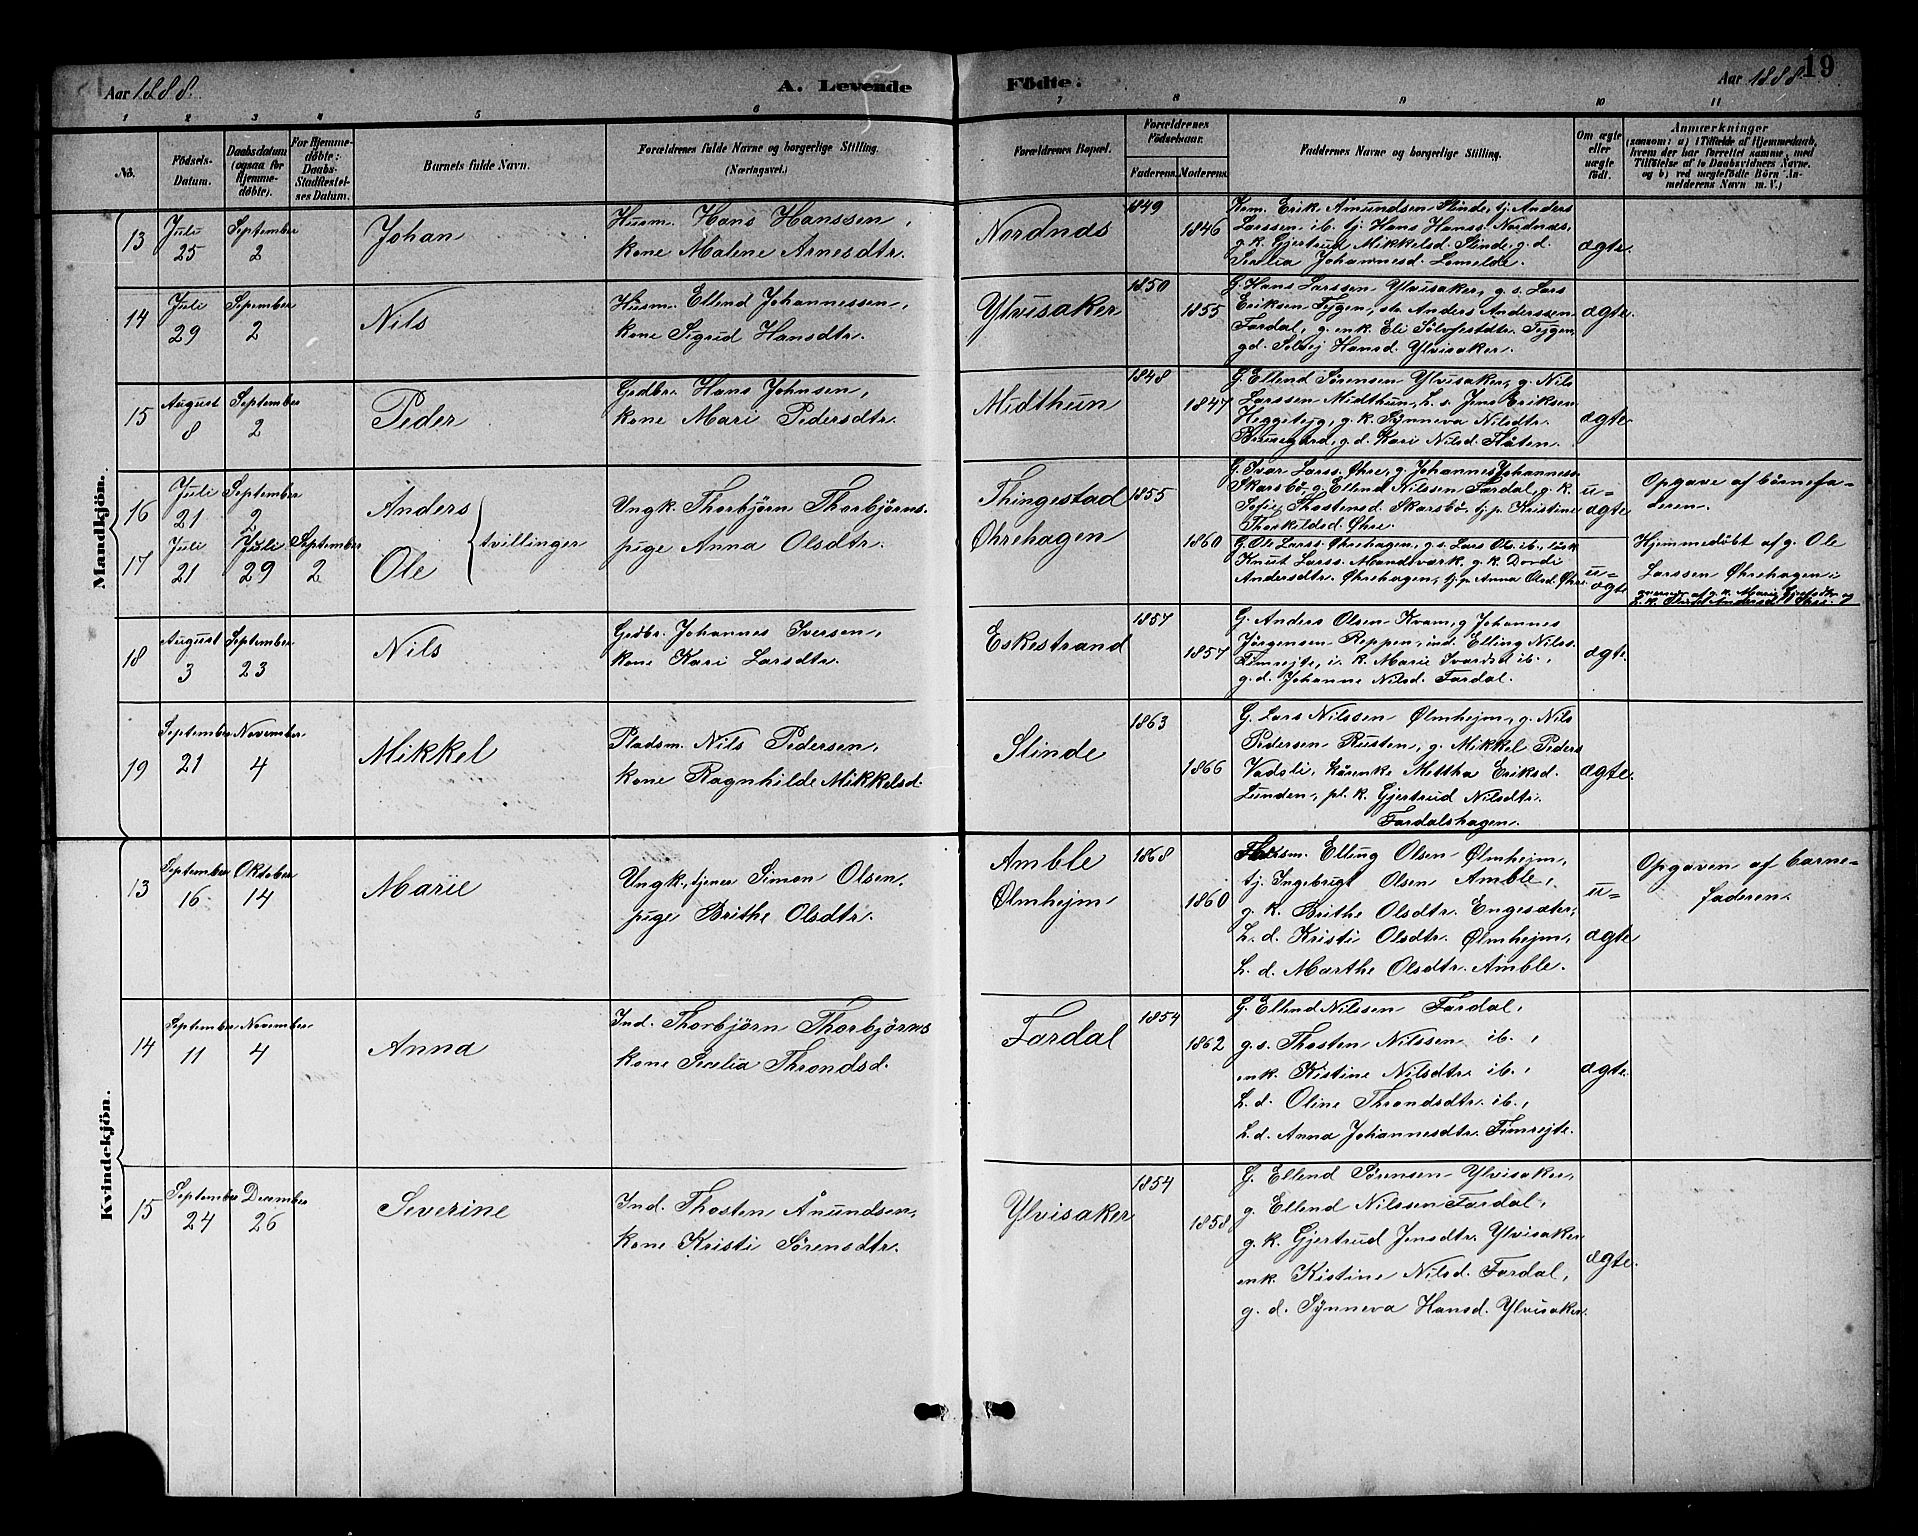 19
Aar 1888.
A. Levende
Födte.
Aar 1888.
1 2 3 4 5 6 7 8 9 10 11
No.
Födsels-
Datum.
Daabsdatum
(ogsaa for
Hjemme-
døbte).
For Hjemme-
døbte:
Daabs-
Stadfæstel-
ses Datum.
Barnets fulde Navn.
Forældrenes fulde Navne og borgerlige Stilling.
(Næringsvei.)
Forældrenes Bopæl.
Forældrenes
Födselsaar.
Faderens.
Moderens.
Faddernes Navne og borgerlige Stilling.
Om ægte
eller
uægte
født.
Anmærkninger
(saasom: a) i Tilfælde af Hjemmedaab,
hvem der har forrettet samme, med
Tilföielse af to Daabsvidners Navne,
og b) ved uægtefödte Börn An-
melderens Navn m. V.)
Mandkjön.
13
Juli
25
September
2
Johan
Husm. Hans Hanssen,
kone Malene Arnesdtr.
Nordnæs
1849
1846
Krm. Erik Amundsen Slinde, tj. Anders
Larssen ib. tj. Hans Hanss. Nordnæs,
g. k. Gjertrud Mikkelsd. Slinde, g. d.
Serelia Johannesd. Lomelde.
ægte.
14
Juli
29
Sepember
2
Nils
Husm. Ellend Johannessen,
kone Sigrud Hansdtr.
Ylvisaker
1850
1855
G. Hans Larssen Ylvisaker, g. s. Lars
Eriksen Tygen, str. Anders Anderssen
Fardal, g. enk. Eli Sølvfestdtr. Tejgen,
gd. Solvej Hansd. Ylvisaker.
ægte.
15
August
8
September
2
Peder
Grdbr. Hans Johnsen,
kone Mari Pedersdtr.
Midthun
1848
1847
G. Ellend Sørensen Ylvisaker, g. Nils
Larssen Midthun, L. s. Jens Eriksen
Heggetejg, g. k. Synneva Nilsdtr.
Bruægard, g. d. Kari Nilsd. Slåten.
ægte.
16
Juli
21
September
2
Anders
tvillinger
Ungk. Thorbjörn Thorbjörns.
pige Anna Olsdtr.
Thingestad
Øhrehagen
1855
1860
G. Ivar Larss. Øhre, g. Johannes Johanness.
Skarsbø, g. Ellend Nilssen Fardal, g. k.
Sofie Thostensd. Skarsbø, tj. p. Kristine
Thorkildsd. Øhre.
u=
ægte
Opgave af børnefa-
deren.
17
Juli
21
Juli
29
September
2
Ole
G. Ole Larss. Øhrehagen, g. s. Lars Ols. ib.,
Knut Larss. g. k. Dordi
Andersdtr. Øhrehagen, tj. p. Anna Olsd. Øhre.
u=
ægte
Hjemmedøbt af g. Ole
Larssen Øhrehagen i
18
August
3
September
23
Nils
Grdbr. Johannes Iversen,
kone Kari Larsdtr.
Eskestrand
1857
1857
G. Anders Olsen Kvam, g. Johannes
Jörgensen Reppen, ind. Elling Nilss.
Fimrejte, i. k. Marie Ivarsd. ib.,
g. d. Johanne Nilsd. Fardal.
ægte.
19
September
21
November
4
Mikkel
Pladsm. Nils Pedersen,
kone Ragnhilde Mikkelsd.
Slinde
1863
1866
G. Lars Nilssen Ølmhejm, g. Nils
Pedersen Rusten, g. Mikkel Peders
Vadsli, kårenke Mettha Eriksd.
Lunden, pl. k. Gjertrud Nilsdtr.
Fardalshagen.
ægte.
Kvindekjön.
13
September
16
Oktober
14
Marie
Ungk., tjener Simon Olsen,
pige Brithe Olsdtr.
Amble
Ølmhejm
1868
1860
Husm. Elling Olsen Ølmhejm,
tj. Ingebrigt Olsen Amble,
g. k. Brithe Olsdtr. Engesæter,
L. d. Kristi Olsdtr. Ølmhejm,
L. d. Marthe Olsdtr. Amble.
u=
ægte
Opgaven af barne-
faderen.
14
September
11
November
4
Anna
Ind. Thorbjörn Thorbjörns
kone Secelia Throndsd.
Fardal
1854
1862
G. Ellend Nilssen Fardal,
g. s. Thosten Nilssen ib.,
enk. Kistine Nilsdtr. ib.,
L. d. Oline Throndsdtr. ib.,
L. d. Anna Johannesdtr. Fimrejte.
ægte.
15
September
24
December
26
Severine
Ind. Thosten Ånundsen,
kone Kristi Sørensdtr.
Ylvisaker
1854
1858
G. Ellend Sørensen Ylvisaker,
g. Ellend Nilssen Fardal,
g. k. Gjertrud Jensdtr. Ylvisaker
enk. Kistine Nilsd. Fardal,
g. d. Synneva Hansd. Ylvisaker.
ægte.